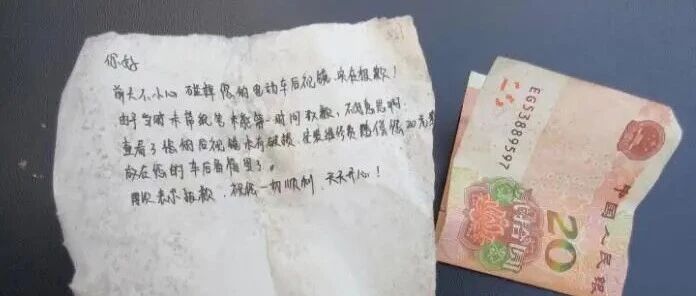 你好
前天不小心碰掉您的电动车后视镜 实在抱歉！
由于当时未带纸笔未能第一时间致歉，不好意思啊
查看了您的后视镜有破损 安装维修费赔偿您20元
放在您的车后备箱里了。
再次表示抱歉，祝您一切顺利，天天开心！
EG53889597
中国人民银
贰拾圆
20